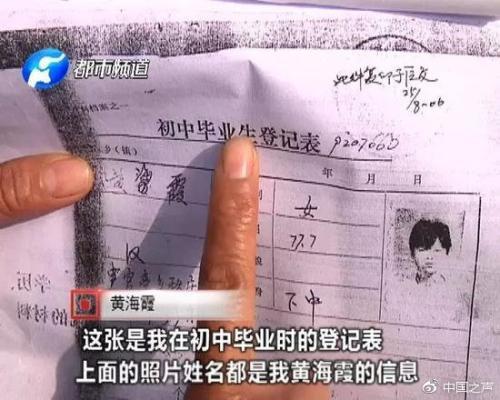 都市频道
此件复印于区交
25/8-06
档案之一
初中毕业生登记表 9207663
乡（镇）
年 月 日
黄海霞
别
女
77.7
汉
下中
学历
黄海霞
这张是我在初中毕业时的登记表
上面的照片姓名都是我黄海霞的信息
@中国之声